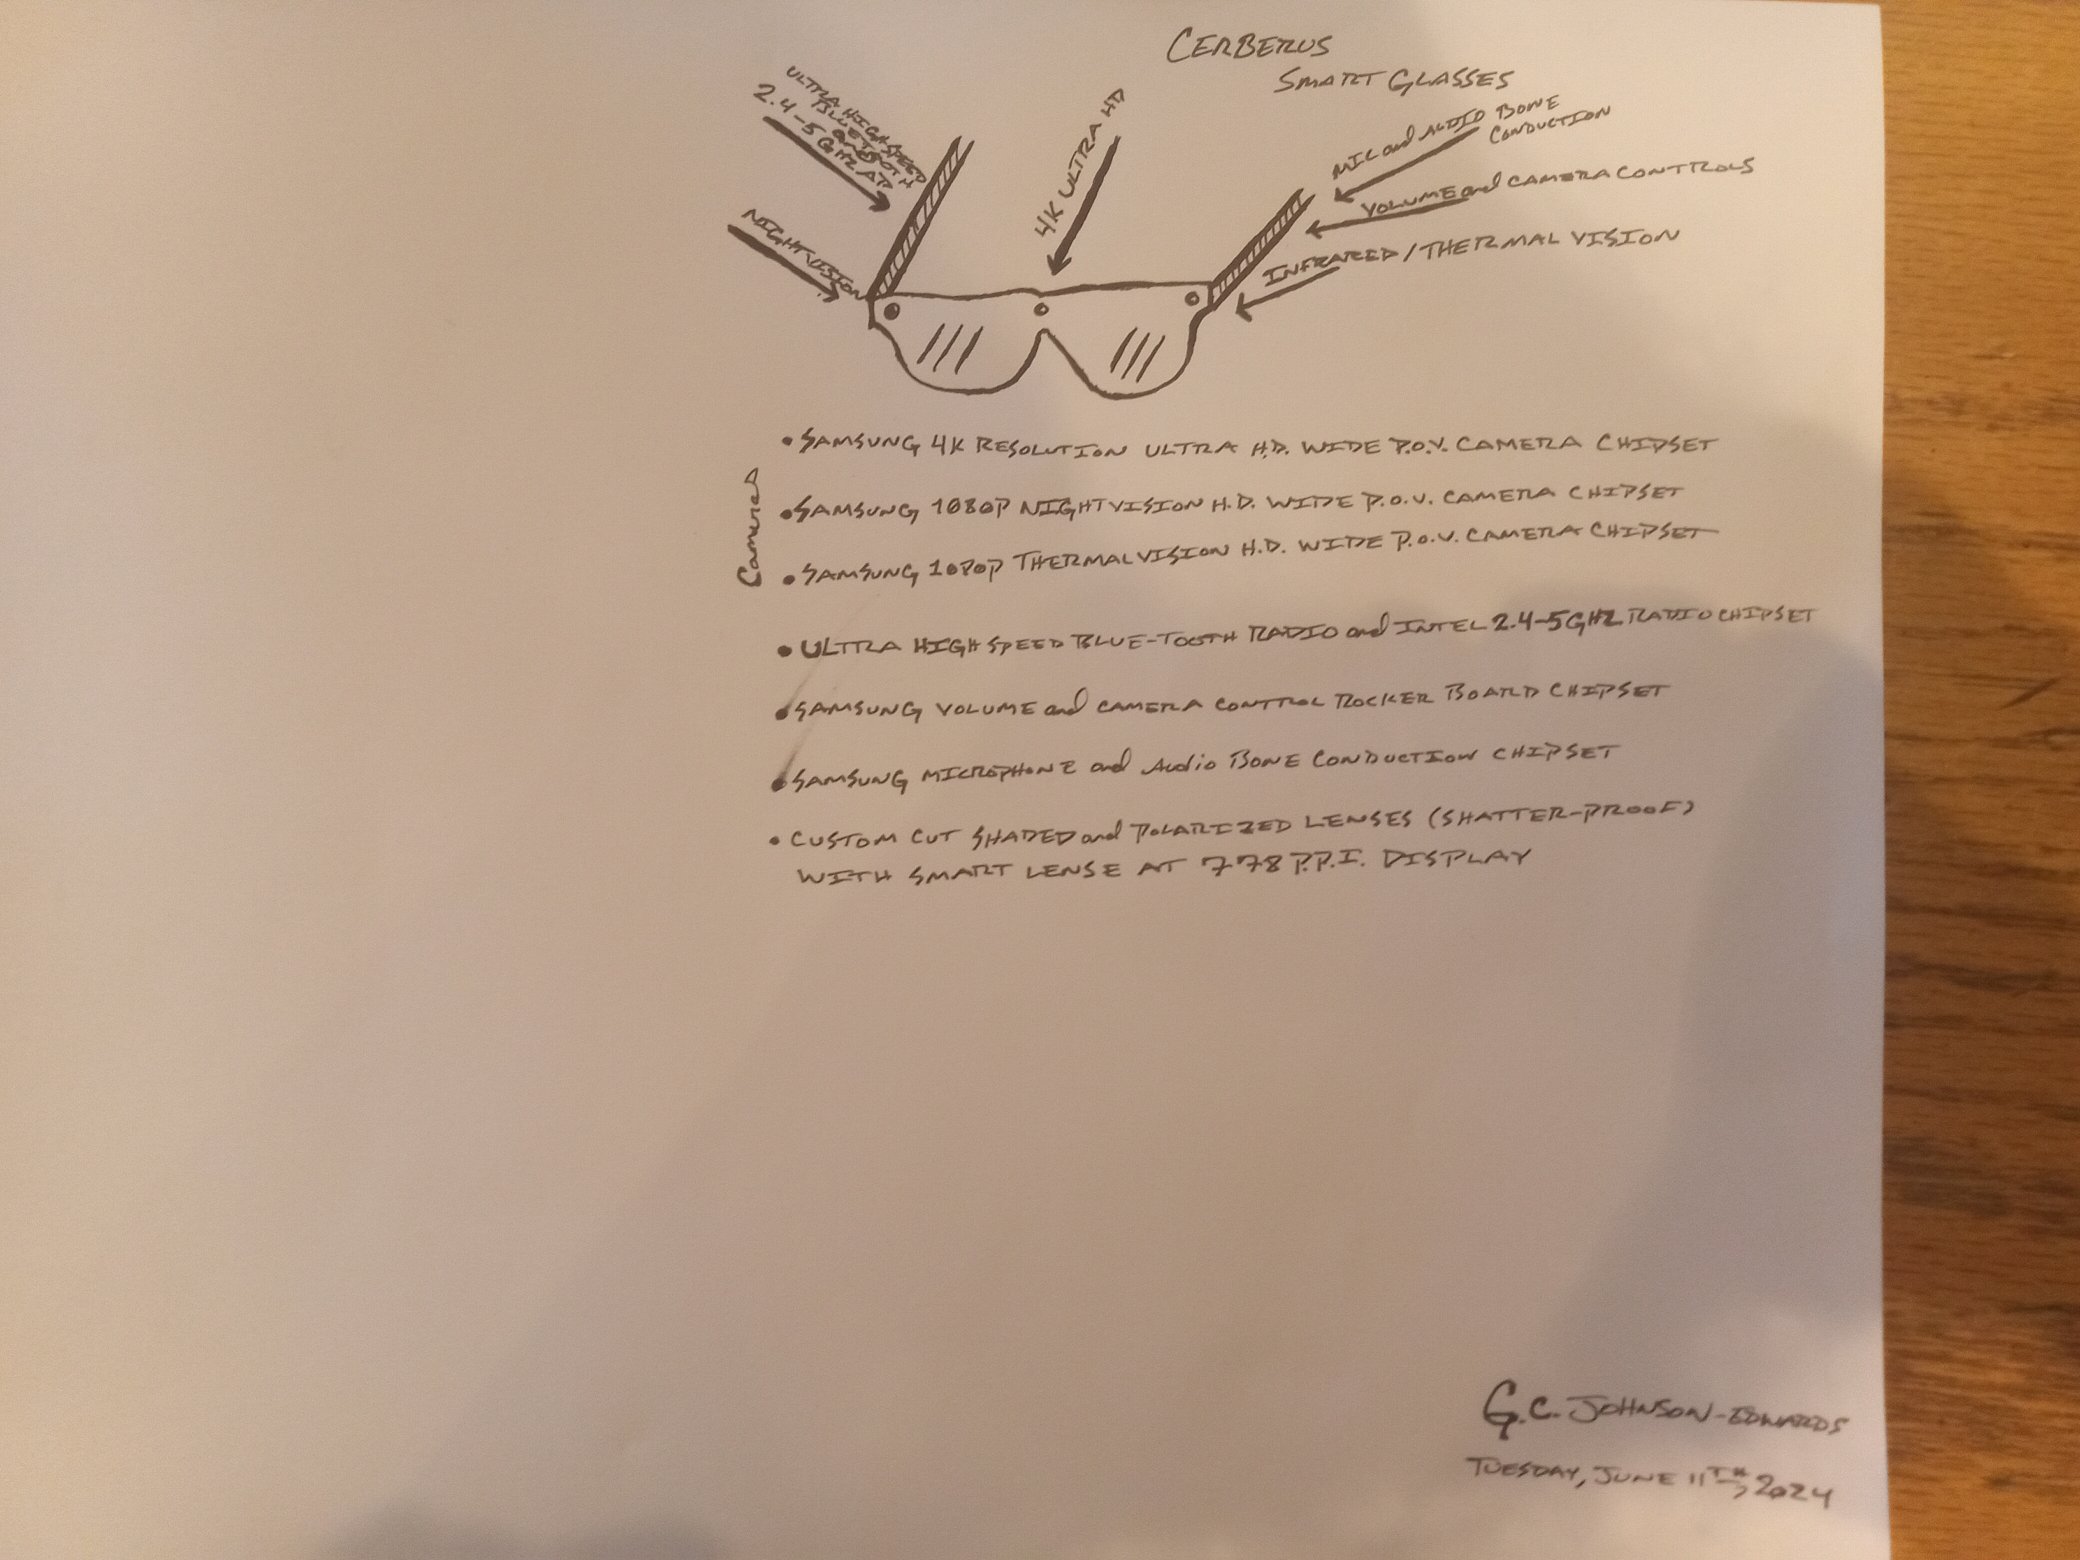 CERBERUS
SMART GLASSES
ULTRA HIGH SPEED
BLUETOOTH
and
2.4-5 GHZ
NIGHTVISION
4K ULTRA HD
MIC and AUDIO BONE
CONDUCTION
VOLUME and CAMERA CONTROLS
INFRARED / THERMAL VISION
Cameras
• SAMSUNG 4K RESOLUTION ULTRA H.D. WIDE P.O.V. CAMERA CHIPSET
• SAMSUNG 1080P NIGHTVISION H.D. WIDE P.O.V. CAMERA CHIPSET
• SAMSUNG 1080P THERMALVISION H.D. WIDE P.O.V. CAMERA CHIPSET
• ULTRA HIGH SPEED BLUE-TOOTH RADIO and INTEL 2.4-5GHZ RADIO CHIPSET
• SAMSUNG VOLUME and CAMERA CONTROL ROCKER BOARD CHIPSET
• SAMSUNG MICROPHONE and Audio BONE CONDUCTION CHIPSET
• CUSTOM CUT SHADED and POLARIZED LENSES (SHATTER-PROOF)
WITH SMART LENSE AT 778 P.P.I. DISPLAY
G.C. JOHNSON-EDWARDS
TUESDAY, JUNE 11TH, 2024